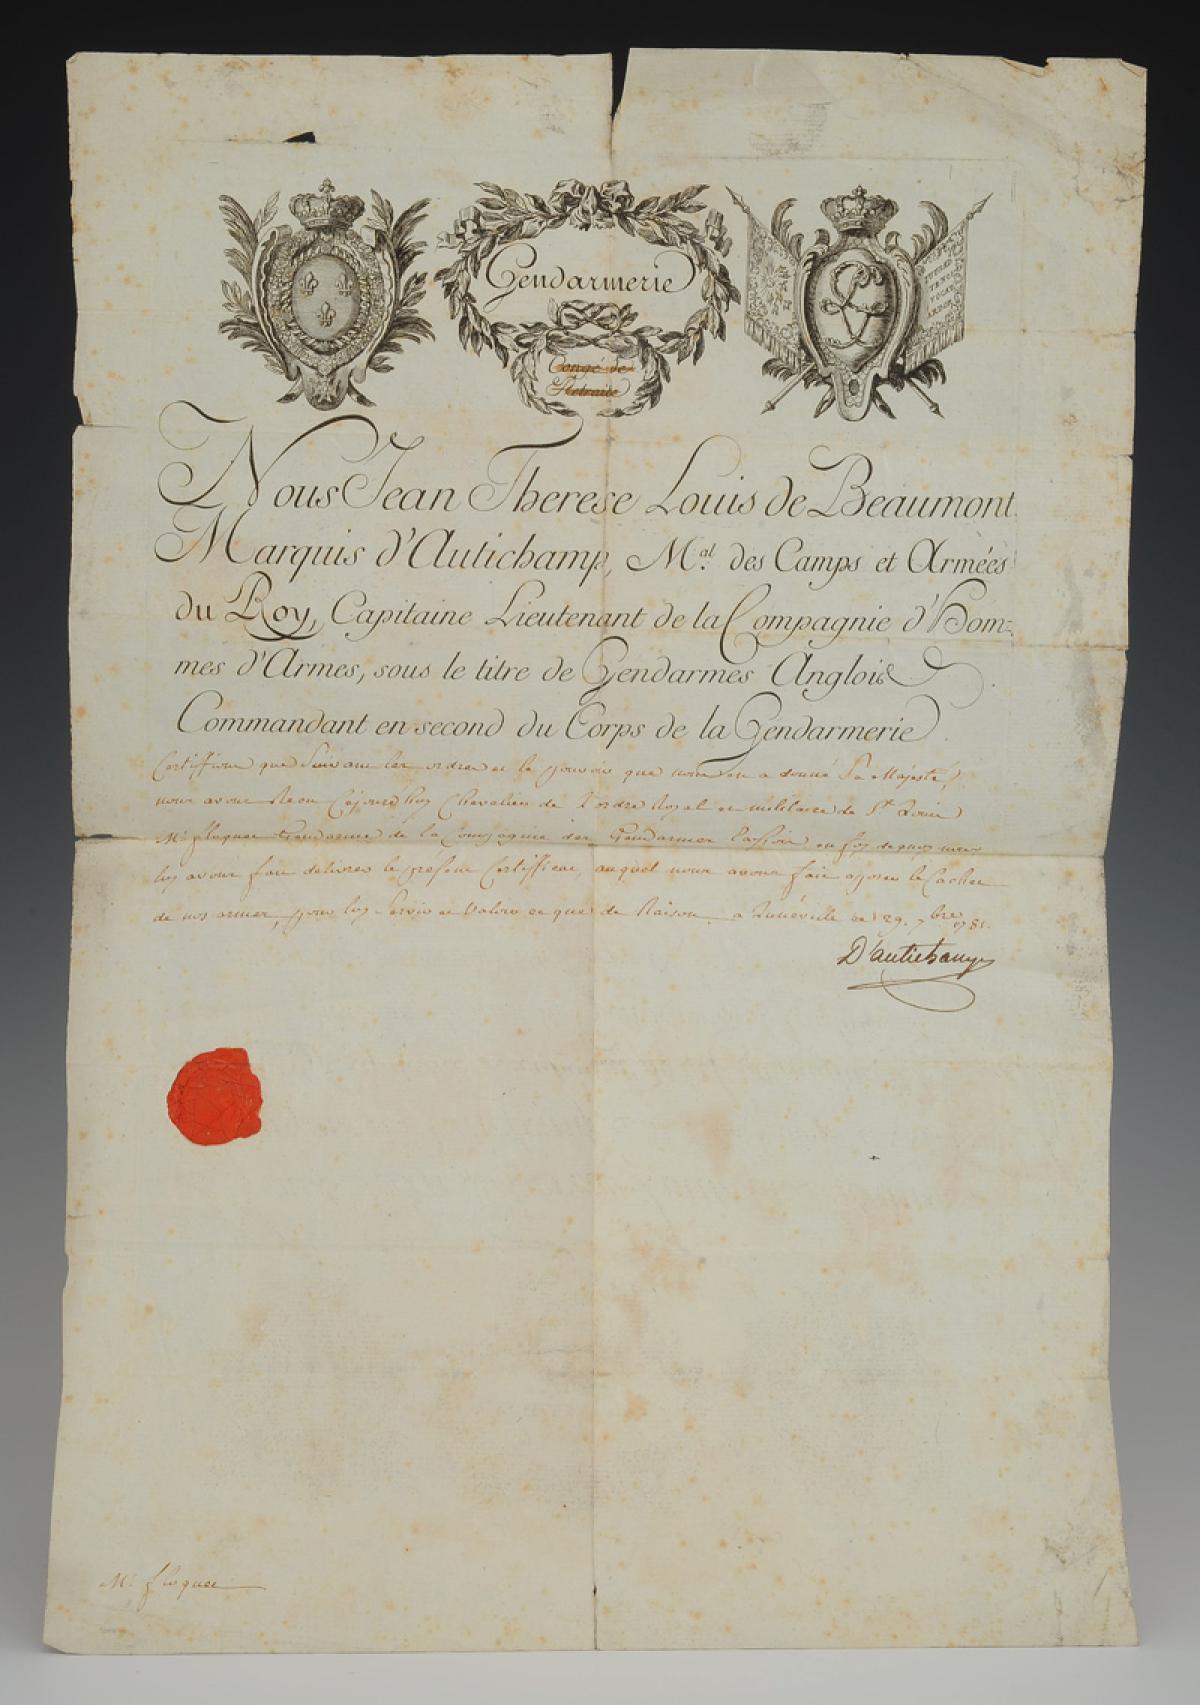 Gendarmerie
Congé de
Retraite
Nous Jean Therese Louis de Beaumont
Marquis d'Autichamp, Mal. des Camps et Armées
du Roy, Capitaine Lieutenant de la Compagnie d'Hom-
mes d'Armes, sous le titre de Gendarmes Anglois
Commandant en second du Corps de la Gendarmerie
Certiffions que Suivant les ordres et le pouvoir que nous en a donné Sa Majesté,
nous avons Recu Cejourd'huy Chevalier de l'ordre Royal et militaire de St. Louis
Mr. floquet Gendarme de la Compagnie des Gendarmes en foy de quoy nous
luy avons fait delivrer le présent Certifficat, auquel nous avons fait aposer le Cachet
de nos armes, pour luy Servir et Valoir ce que de Raison. a Lunéville ce 29. 7bre 1781.
D'autichamp
Mr. floquet